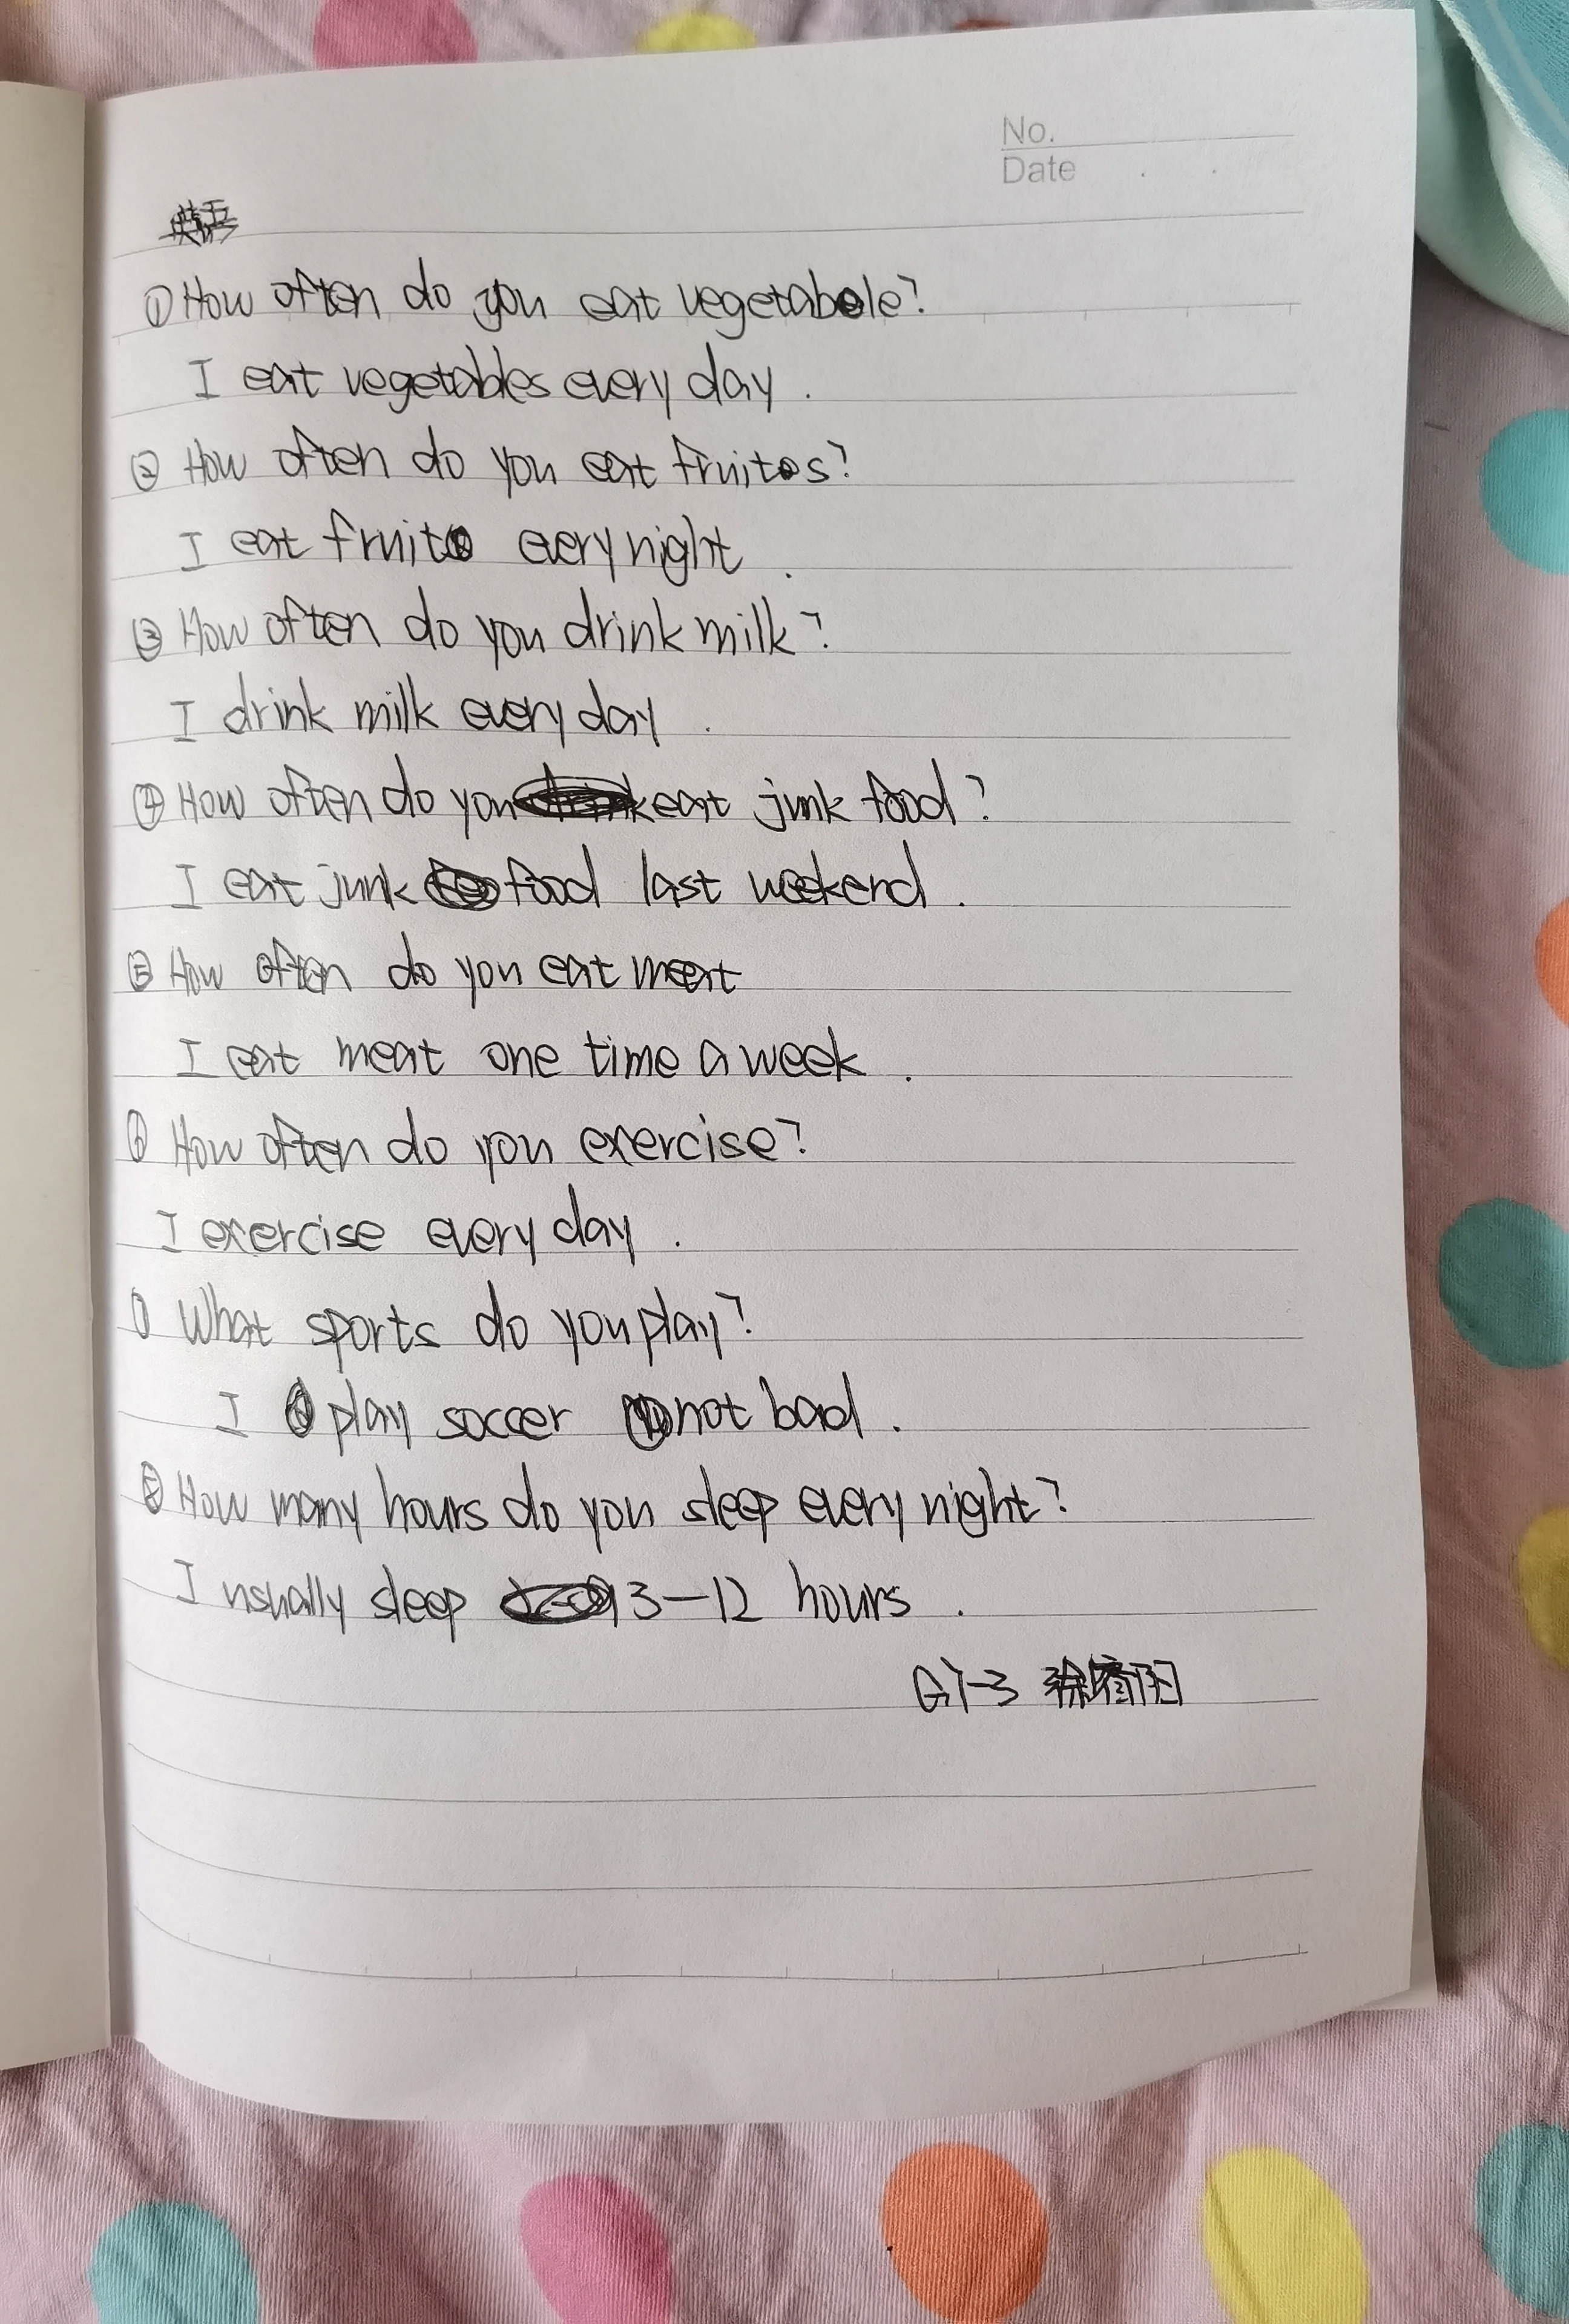 No.
Date
英语
① How often do you eat vegetabole?
I eat vegetables every day.
② How often do you eat fruitos?
I eat fruit every night.
③ How often do you drink milk?
I drink milk every day.
④ How often do you eat junk food?
I eat junk food last weekend.
⑤ How often do you eat meat
I eat meat one time a week.
⑥ How often do you exercise?
I exercise every day.
What sports do you play?
I play soccer not bad.
How many hours do you sleep every night?
I usually sleep 3-12 hours.